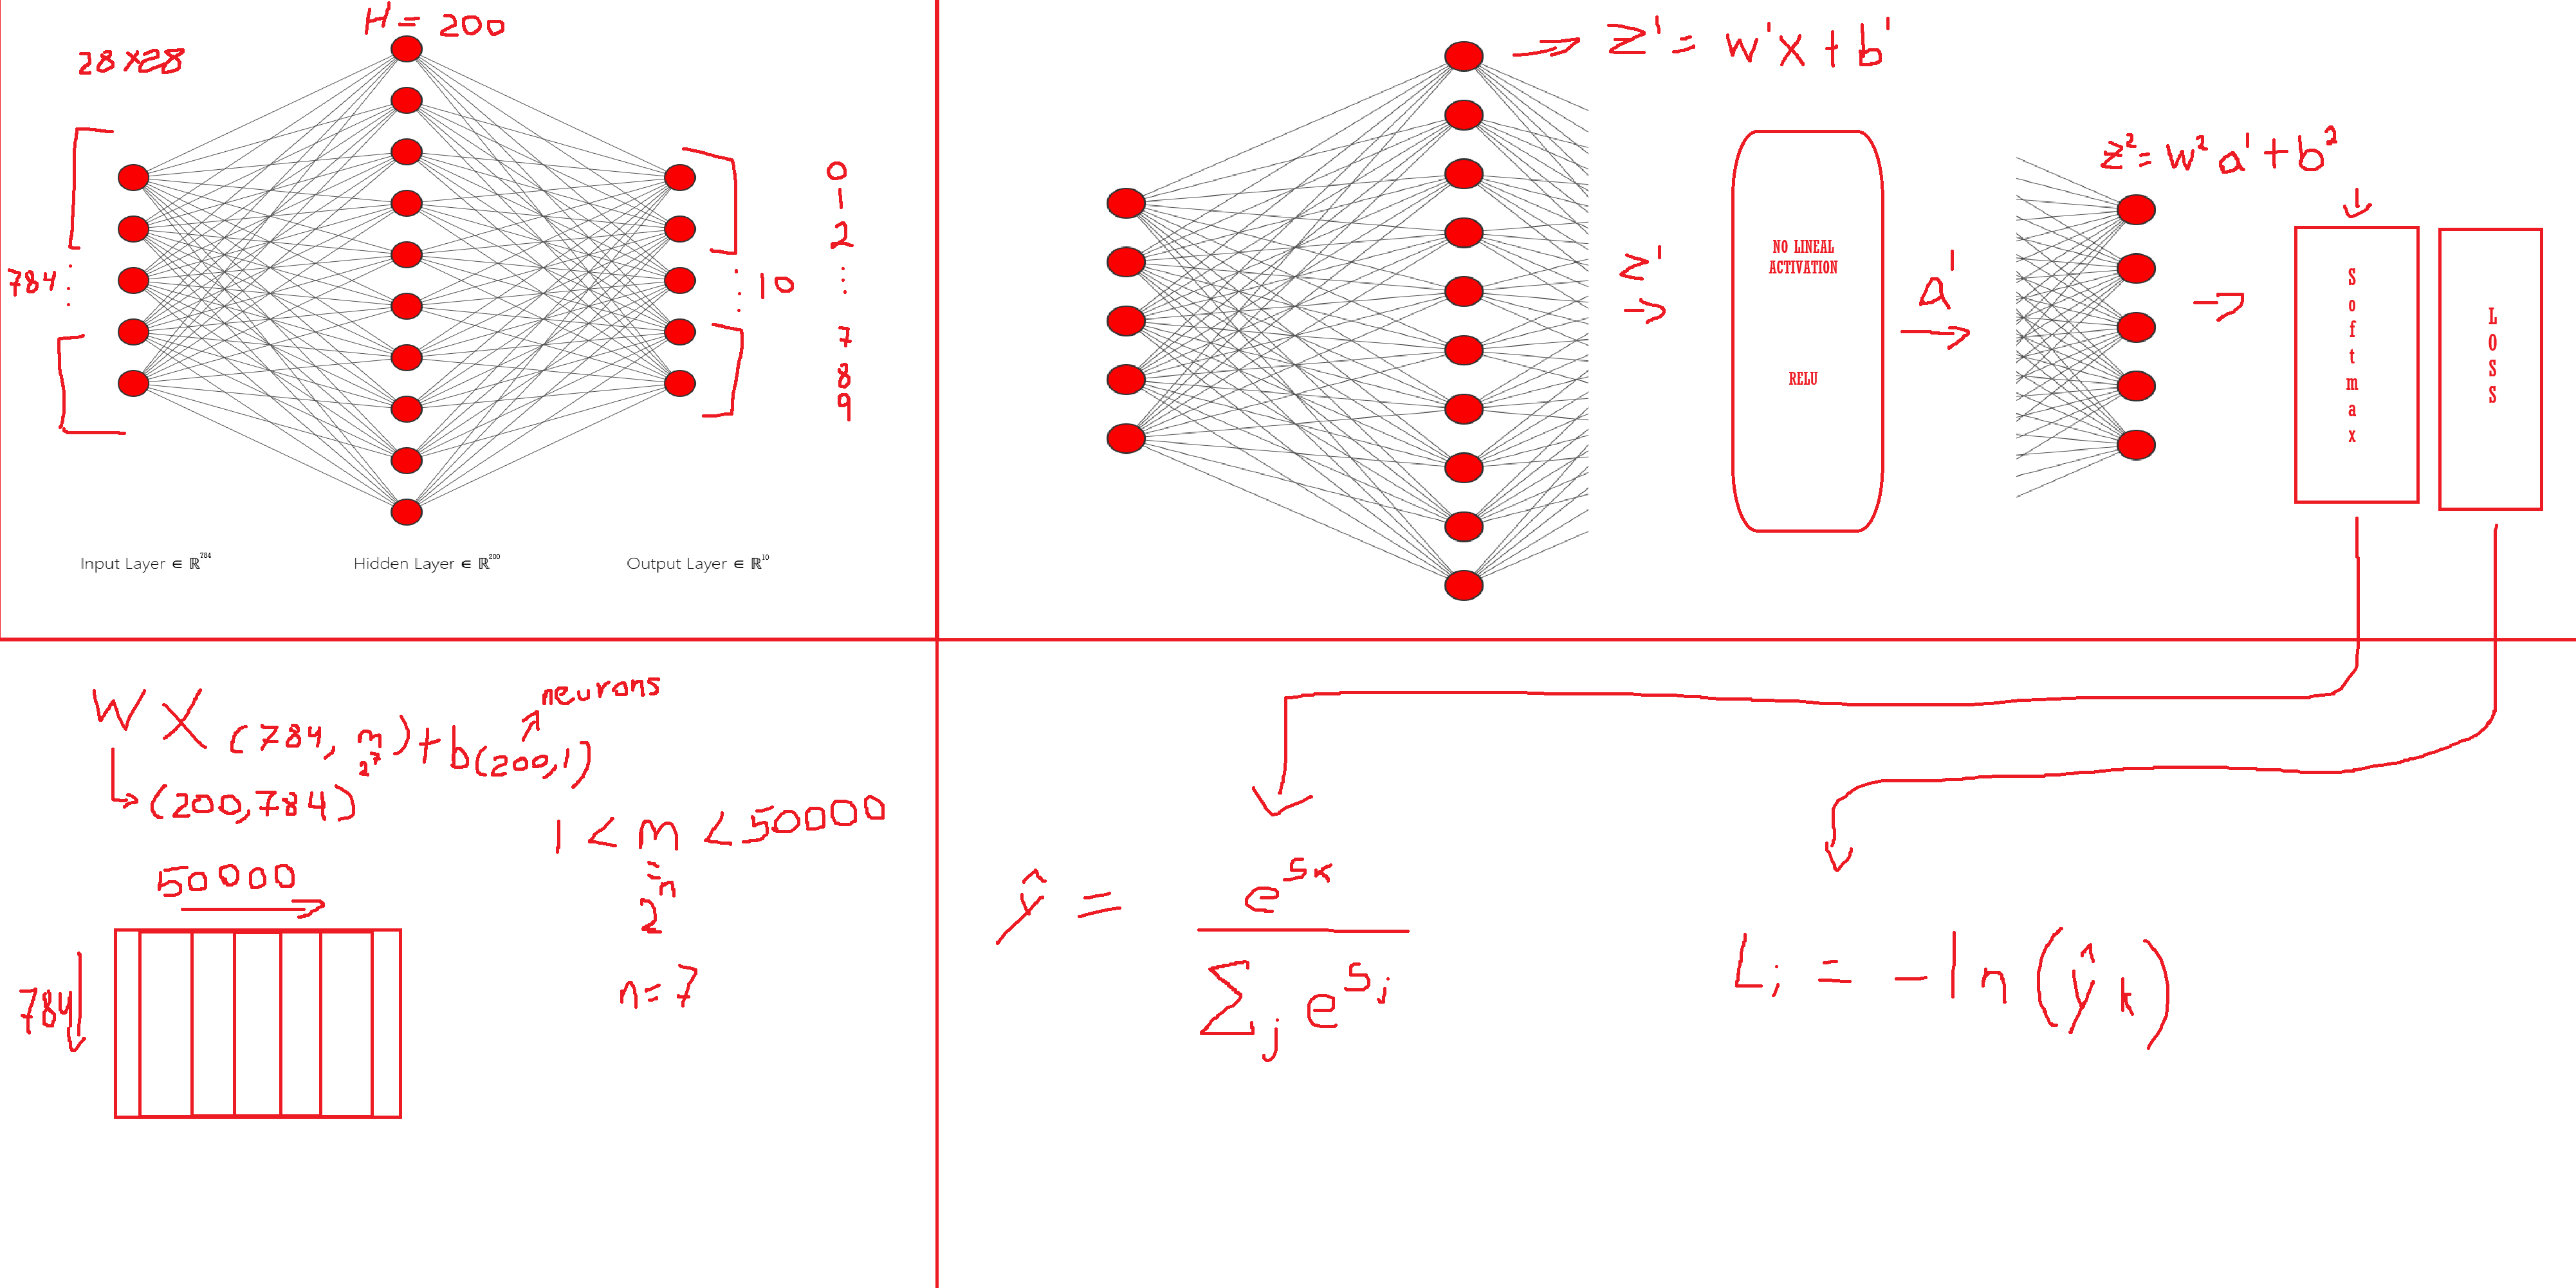 H = 200
28 x 28
784
10
0
1
2
7
8
9
Input Layer ∈ ℝ⁷⁸⁴
Hidden Layer ∈ ℝ²⁰⁰
Output Layer ∈ ℝ¹⁰
z¹ = w¹x + b¹
z¹
NO LINEAL
ACTIVATION
RELU
a¹
z² = w² a¹ + b²
Softmax
LOSS
neurons
W X (784, m) + b (200,1)
2⁷
(200,784)
1 < m < 50000
=
2ⁿ
n = 7
50000
784
ŷ = e^{sₖ} / Σⱼ e^{sⱼ}
Lᵢ = -ln(ŷₖ)